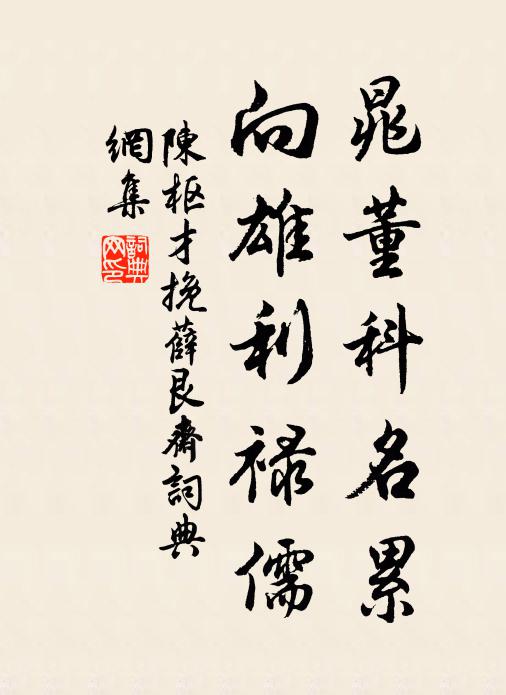 晁董科名累
向雄利禄儒
陳枢才挽薛艮齋詞典
網集
詞典
网印